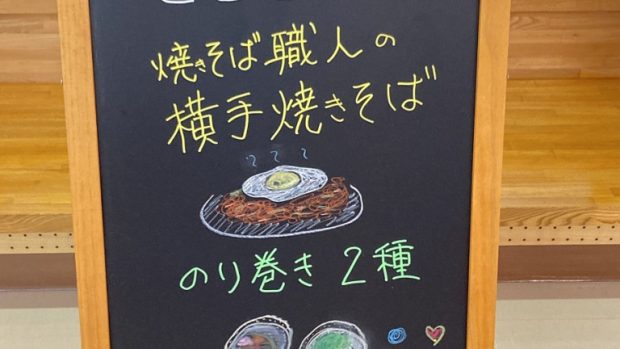 焼きそば職人の
横手焼きそば
のり巻き 2種